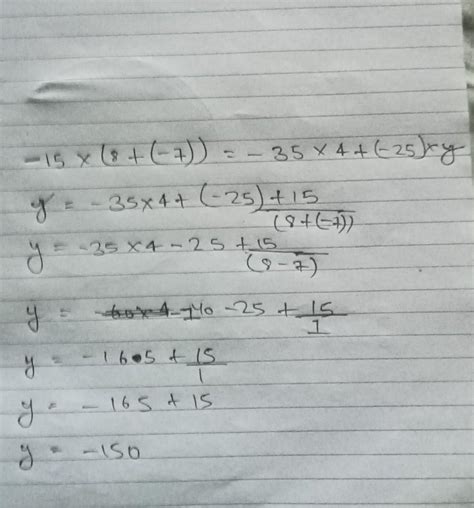 -15 × (8 + (-7)) = -35 × 4 + (-25) × y
y = -35×4 + (-25) + 15 / (8+(-7))
y = -35 × 4 - 25 + 15 / (8-7)
y = -140 - 25 + 15 / 1
y = -165 + 15 / 1
y = -165 + 15
y = -150